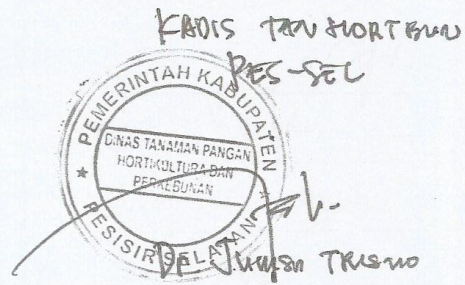 KADIS TAN HORTBUN
PES-SEL
PEMERINTAH KABUPATEN
DINAS TANAMAN PANGAN
HORTIKULTURA DAN
PERKEBUNAN
PESISIR SELATAN